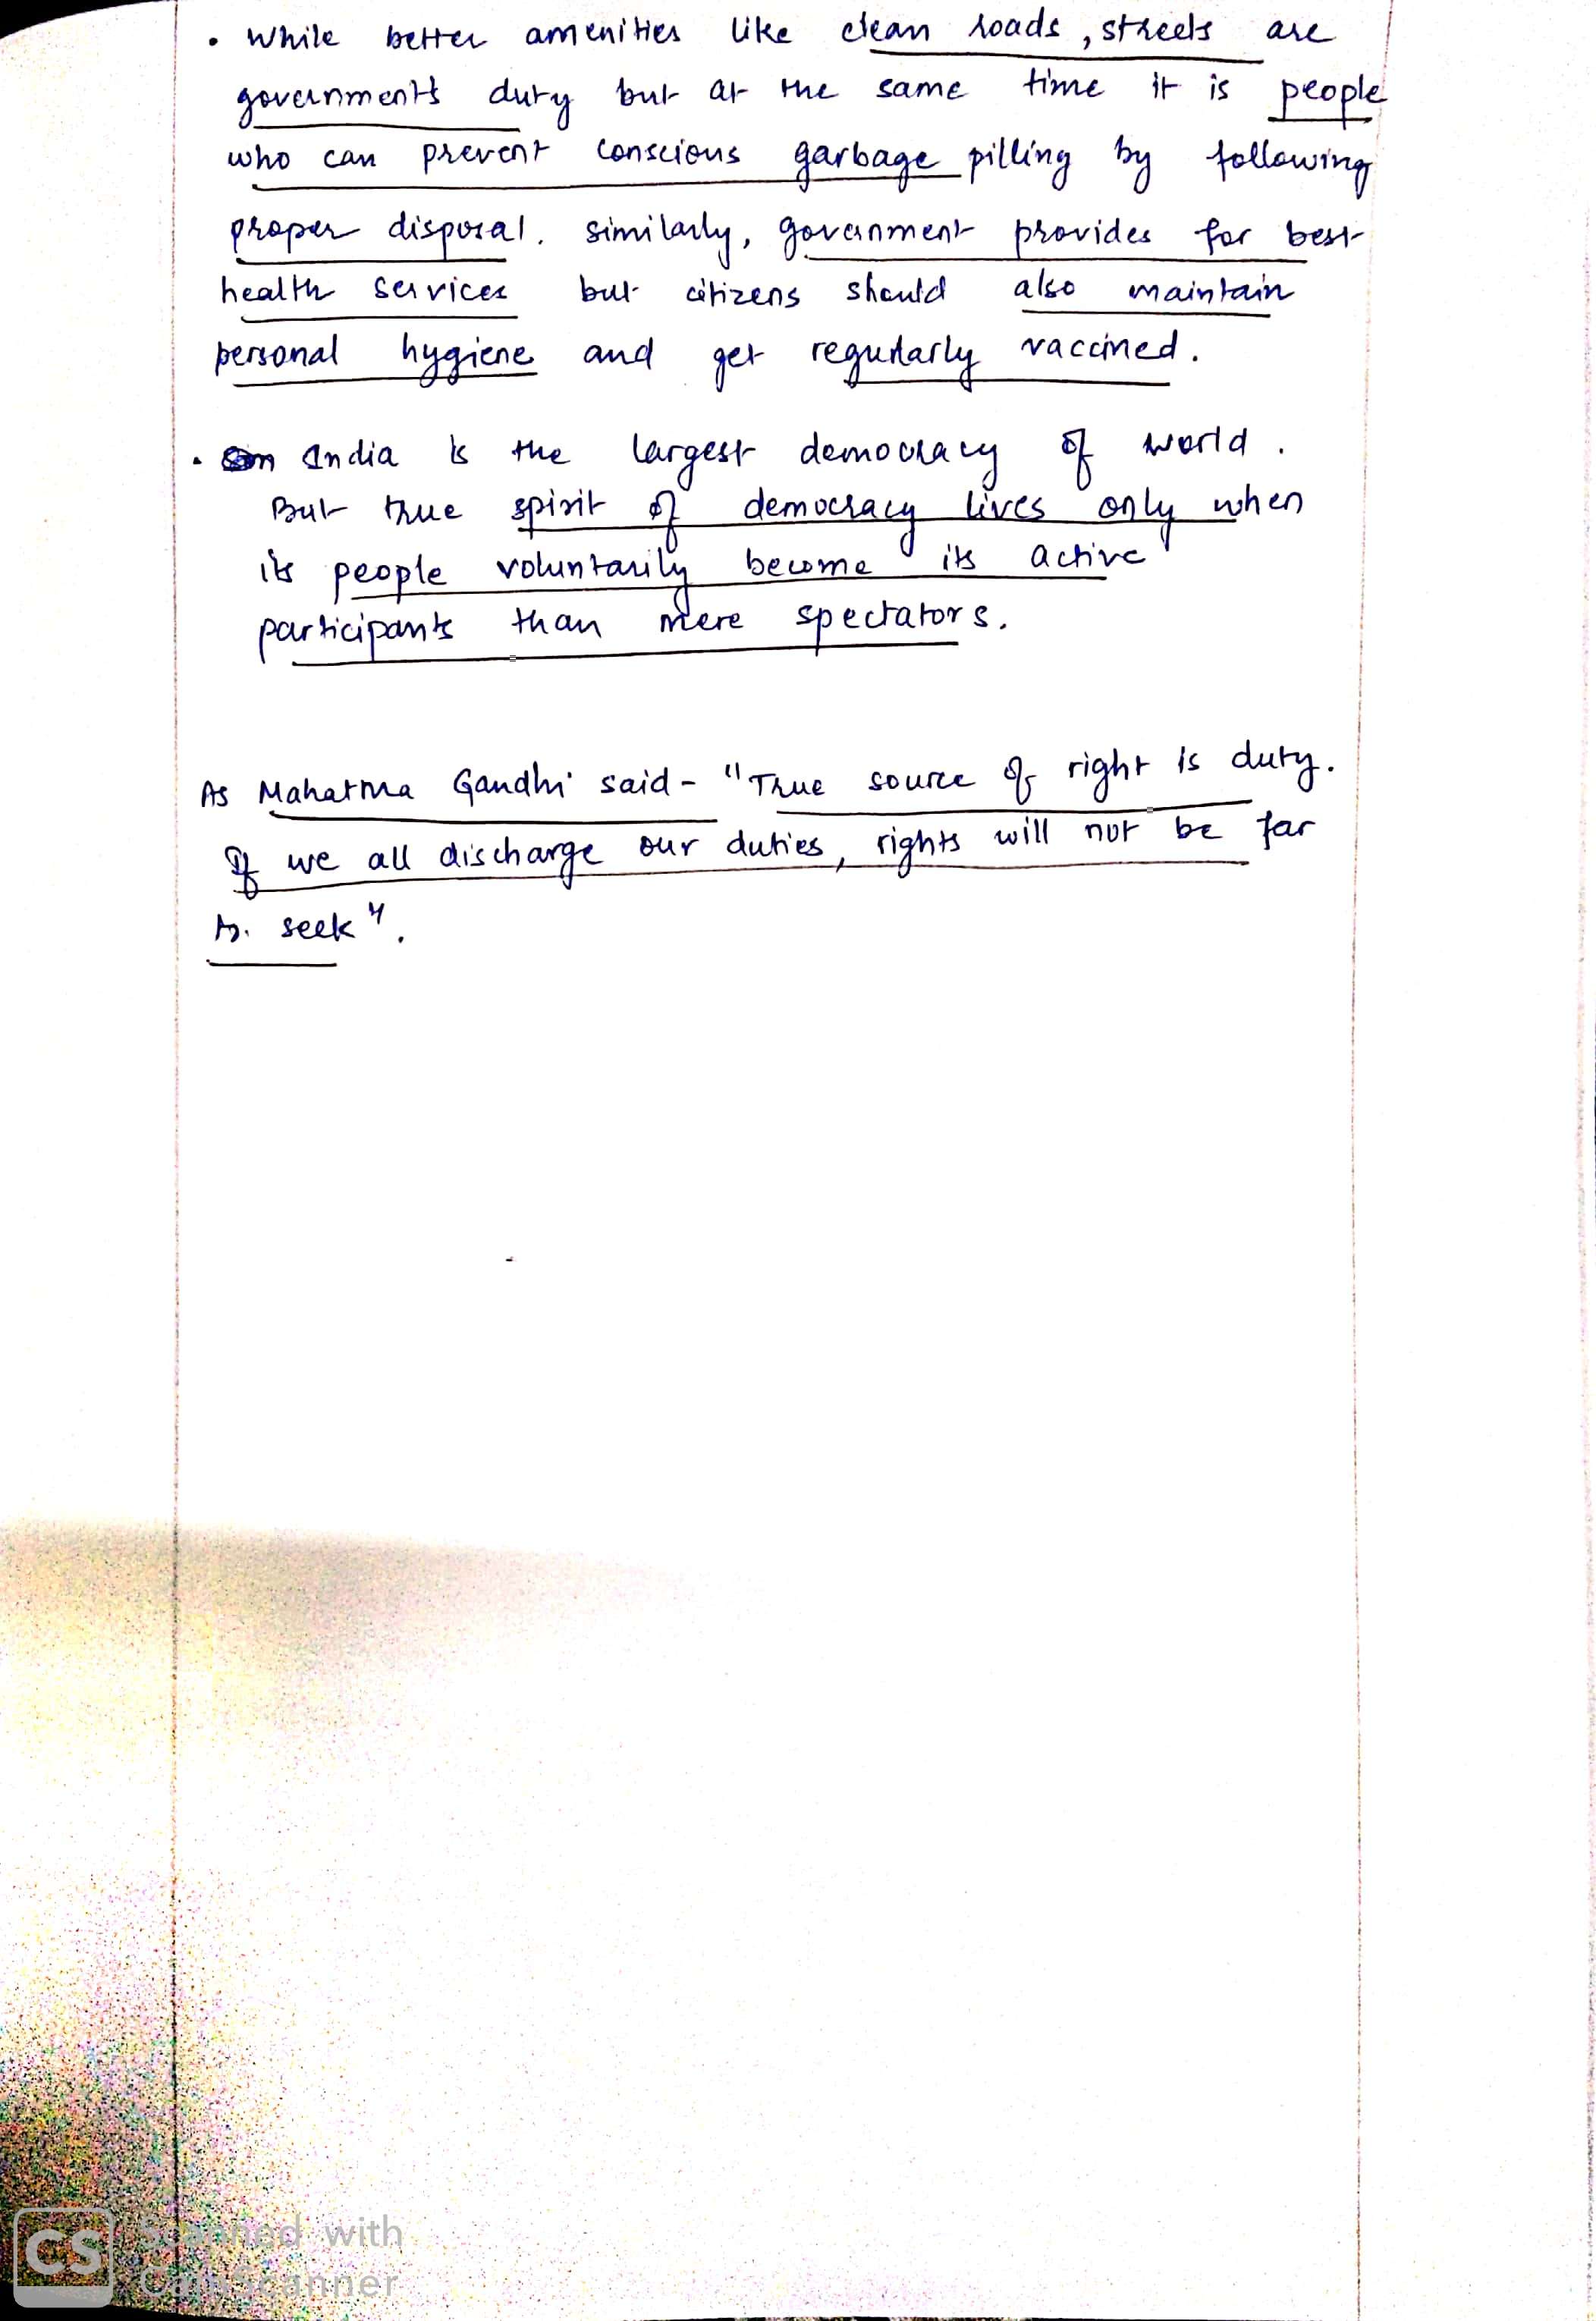 • While better amenities like clean roads, streets are
governments duty but at the same time it is people
who can prevent conscious garbage pilling by following
proper disposal. similarly, government provides for best
health services but citizens should also maintain
personal hygiene and get regularly vaccined.
• India is the largest democracy of world.
But true spirit of democracy lives only when
its people voluntarily become its active
participants than mere spectators.
As Mahatma Gandhi said - "True source of right is duty.
If we all discharge our duties, rights will not be far
to seek".
CS Scanned with
CamScanner